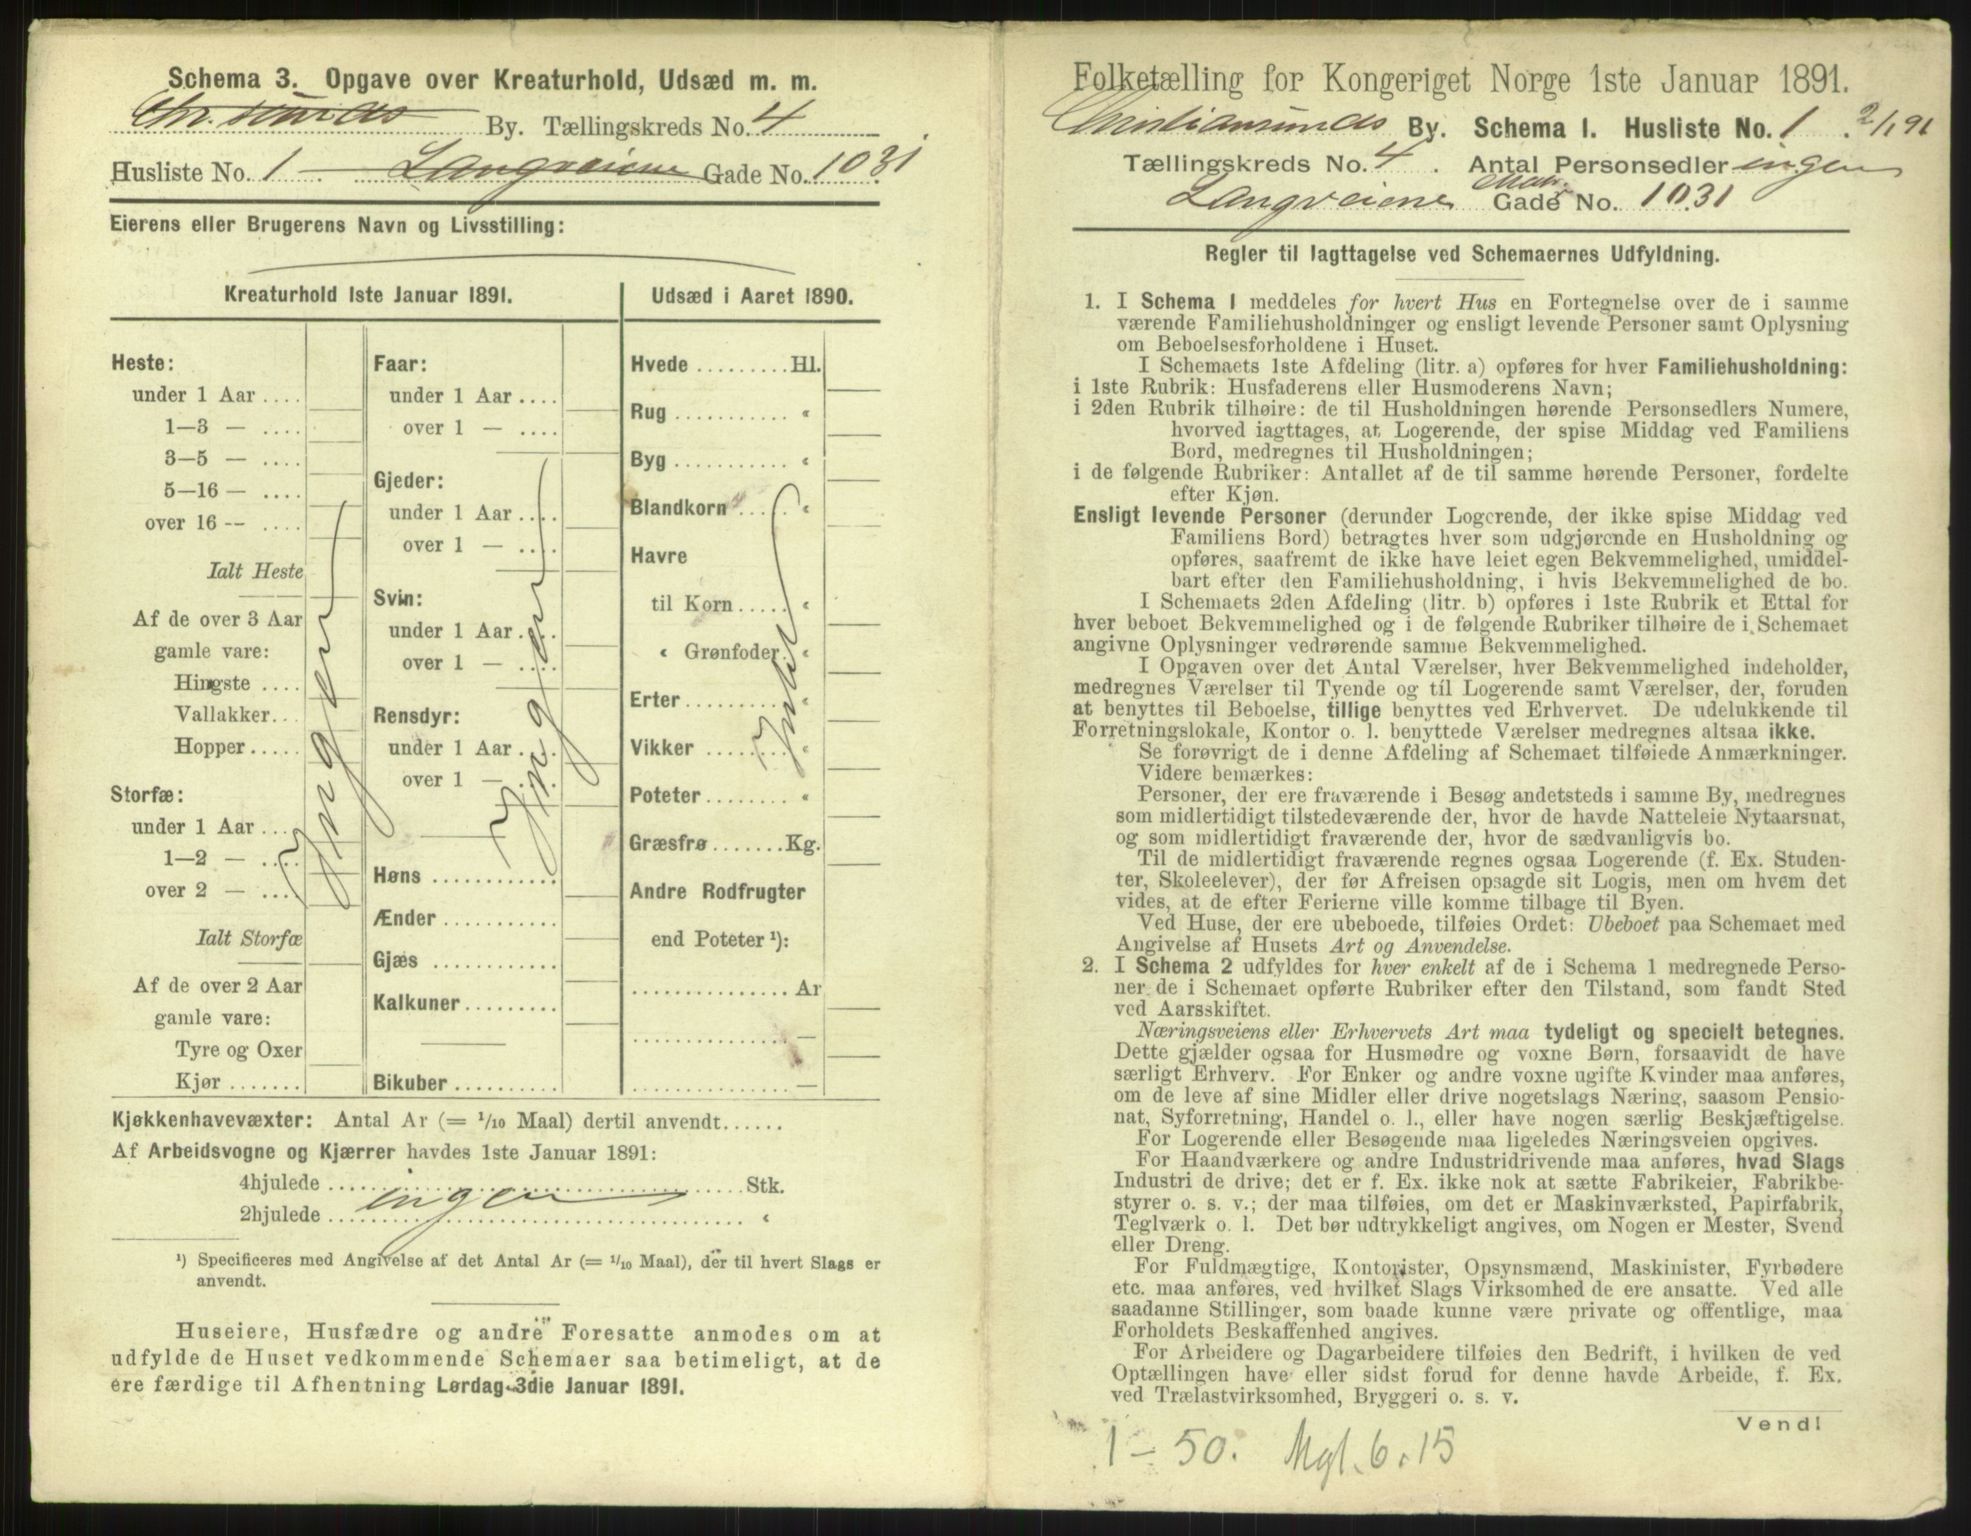 Schema 3. Opgave over Kreaturhold, Udsæd m. m.
Chr.sunds By. Tællingskreds No. 4
Husliste No. 1 Langveiene Gade No. 1031
Eierens eller Brugerens Navn og Livsstilling:
Kreaturhold 1ste Januar 1891.
Heste:
under 1 Aar ....
1—3 — ....
3—5 — ....
5—16 — ....
over 16 -- ....
Ialt Heste
Af de over 3 Aar
gamle vare:
Hingste ....
Vallakker...
Hopper.....
Storfæ:
under 1 Aar ...
1—2 — ....
over 2 — ...
Ialt Storfæ
Af de over 2 Aar
gamle vare:
Tyre og Oxer
Kjør .......
Ingen
Faar:
under 1 Aar ....
over 1 — ....
Gjeder:
under 1 Aar ....
over 1 — ....
Svin:
under 1 Aar ....
over 1 — ....
Rensdyr:
under 1 Aar ....
over 1 — ....
Høns ............
Ænder ...........
Gjæs ............
Kalkuner.........
Bikuber..........
Ingen
Udsæd i Aaret 1890.
Hvede .........Hl.
Rug ........... «
Byg ........... «
Blandkorn ..... «
Havre
til Korn..... «
« Grønfoder. «
Erter.......... «
Vikker ........ «
Poteter........ «
Græsfrø.......Kg.
Andre Rodfrugter
end Poteter ¹):
............... Ar
............... —
............... —
Intet
Kjøkkenhavevæxter: Antal Ar (= 1/10 Maal) dertil anvendt......
Af Arbeidsvogne og Kjærrer havdes 1ste Januar 1891:
4hjulede ........ Stk.
ingen
2hjulede ........ «
¹) Specificeres med Angivelse af det Antal Ar (= 1/10 Maal), der til hvert Slags er
anvendt.
Huseiere, Husfædre og andre Foresatte anmodes om at
udfylde de Huset vedkommende Schemaer saa betimeligt, at de
ere færdige til Afhentning Lørdag 3die Januar 1891.
Folketælling for Kongeriget Norge 1ste Januar 1891.
Christiansunds By. Schema 1. Husliste No. 1. 2/1 91
Tællingskreds No. 4. Antal Personsedler ingen
Langveiene Matr. Gade No. 1031
Regler til Iagttagelse ved Schemaernes Udfyldning.
1. I Schema 1 meddeles for hvert Hus en Fortegnelse over de i samme
værende Familiehusholdninger og ensligt levende Personer samt Oplysning
om Beboelsesforholdene i Huset.
I Schemaets 1ste Afdeling (litr. a) opføres for hver Familiehusholdning:
i 1ste Rubrik: Husfaderens eller Husmoderens Navn;
i 2den Rubrik tilhøire: de til Husholdningen hørende Personsedlers Numere,
hvorved iagttages, at Logerende, der spise Middag ved Familiens
Bord, medregnes til Husholdningen;
i de følgende Rubriker: Antallet af de til samme hørende Personer, fordelte
efter Kjøn.
Ensligt levende Personer (derunder Logerende, der ikke spise Middag ved
Familiens Bord) betragtes hver som udgjørende en Husholdning og
opføres, saafremt de ikke have leiet egen Bekvemmelighed, umiddel-
bart efter den Familiehusholdning, i hvis Bekvemmelighed de bo.
I Schemaets 2den Afdeling (litr. b) opføres i 1ste Rubrik et Ettal for
hver beboet Bekvemmelighed og i de følgende Rubriker tilhøire de i Schemaet
angivne Oplysninger vedrørende samme Bekvemmelighed.
I Opgaven over det Antal Værelser, hver Bekvemmelighed indeholder,
medregnes Værelser til Tyende og til Logerende samt Værelser, der, foruden
at benyttes til Beboelse, tillige benyttes ved Erhvervet. De udelukkende til
Forretningslokale, Kontor o. l. benyttede Værelser medregnes altsaa ikke.
Se forøvrigt de i denne Afdeling af Schemaet tilføiede Anmærkninger.
Videre bemærkes:
Personer, der ere fraværende i Besøg andetsteds i samme By, medregnes
som midlertidigt tilstedeværende der, hvor de havde Natteleie Nytaarsnat,
og som midlertidigt fraværende der, hvor de sædvanligvis bo.
Til de midlertidigt fraværende regnes ogsaa Logerende (f. Ex. Studen-
ter, Skoleelever), der før Afreisen opsagde sit Logis, men om hvem det
vides, at de efter Ferierne ville komme tilbage til Byen.
Ved Huse, der ere ubeboede, tilføies Ordet: Ubeboet paa Schemaet med
Angivelse af Husets Art og Anvendelse.
2. I Schema 2 udfyldes for hver enkelt af de i Schema 1 medregnede Perso-
ner de i Schemaet opførte Rubriker efter den Tilstand, som fandt Sted
ved Aarsskiftet.
Næringsveiens eller Erhvervets Art maa tydeligt og specielt betegnes.
Dette gjælder ogsaa for Husmødre og voxne Børn, forsaavidt de have
særligt Erhverv. For Enker og andre voxne ugifte Kvinder maa anføres,
om de leve af sine Midler eller drive nogetslags Næring, saasom Pensio-
nat, Syforretning, Handel o. l., eller have nogen særlig Beskjæftigelse.
For Logerende eller Besøgende maa ligeledes Næringsveien opgives.
For Haandværkere og andre Industridrivende maa anføres, hvad Slags
Industri de drive; det er f. Ex. ikke nok at sætte Fabrikeier, Fabrikbe-
styrer o. s. v.; der maa tilføies, om det er Maskinværksted, Papirfabrik,
Teglværk o. l. Det bør udtrykkeligt angives, om Nogen er Mester, Svend
eller Dreng.
For Fuldmægtige, Kontorister, Opsynsmænd, Maskinister, Fyrbødere
etc. maa anføres, ved hvilket Slags Virksomhed de ere ansatte. Ved alle
saadanne Stillinger, som baade kunne være private og offentlige, maa
Forholdets Beskaffenhed angives.
For Arbeidere og Dagarbeidere tilføies den Bedrift, i hvilken de ved
Optællingen have eller sidst forud for denne havde Arbeide, f. Ex.
ved Trælastvirksomhed, Bryggeri o. s. v.
Vend!
1 – 50. Mgl. 6. 15